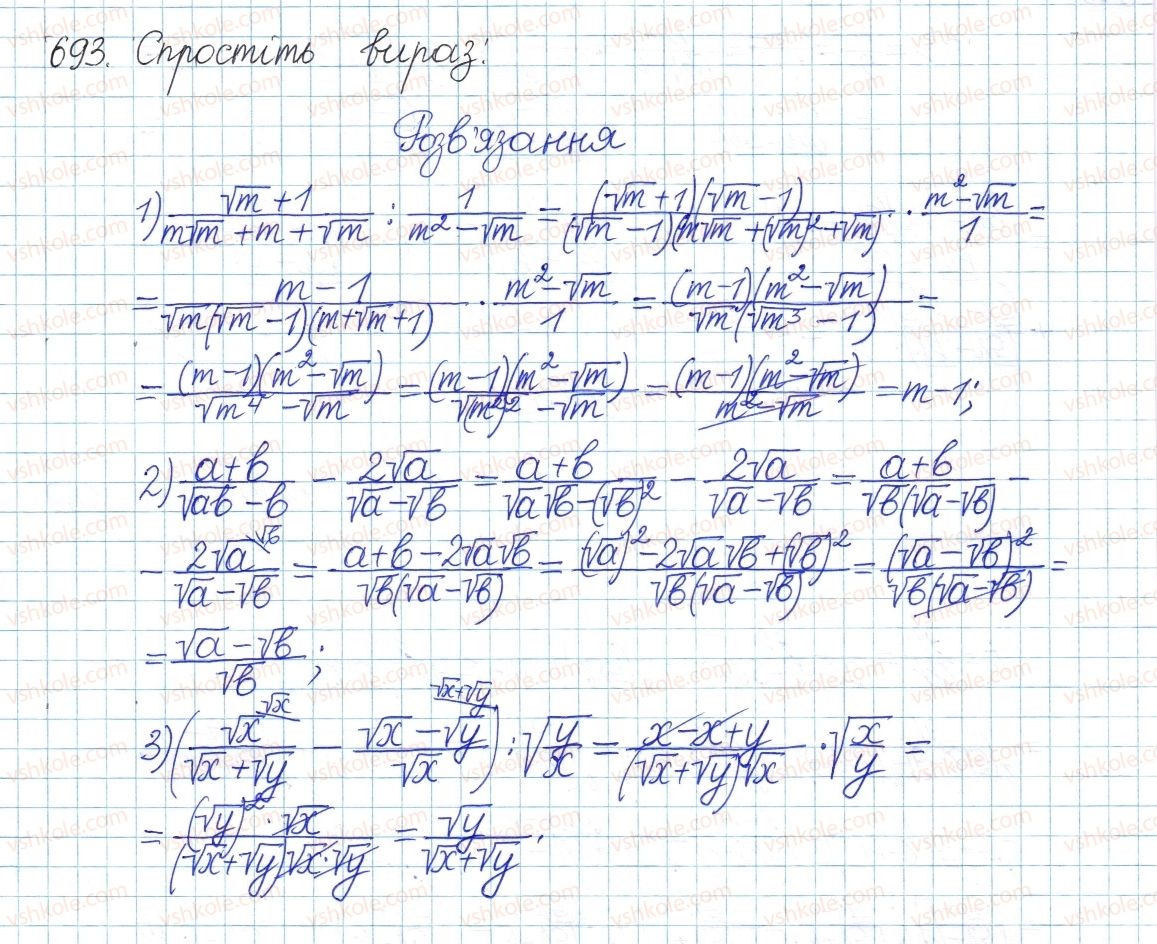 693. Спростіть вираз:
Розв'язання
1) (√m + 1)/(m√m + m + √m) : 1/(m² − √m) = ((√m + 1)(√m − 1))/((√m − 1)(m√m + (√m)² + √m)) · (m² − √m)/1 =
= (m − 1)/(√m(√m − 1)(m + √m + 1)) · (m² − √m)/1 = ((m − 1)(m² − √m))/(√m(√m³ − 1)) =
= ((m − 1)(m² − √m))/(√m⁴ − √m) = ((m − 1)(m² − √m))/(√(m²)² − √m) = ((m − 1)(m² − √m))/(m² − √m) = m − 1;
2) (a + b)/(√ab − b) − (2√a)/(√a − √b) = (a + b)/(√a√b − (√b)²) − (2√a)/(√a − √b) = (a + b)/(√b(√a − √b)) −
− (2√a)/(√a − √b) \√b = (a + b − 2√a√b)/(√b(√a − √b)) = ((√a)² − 2√a√b + (√b)²)/(√b(√a − √b)) = ((√a − √b)²)/(√b(√a − √b)) =
= (√a − √b)/√b;
3) (√x/(√x + √y) \√x − (√x − √y)/√x \√x+√y) : √(y/x) = (x − x + y)/((√x + √y)√x) · √(x/y) =
= ((√y)² · √x)/((√x + √y)√x · √y) = √y/(√x + √y).
vshkole.com